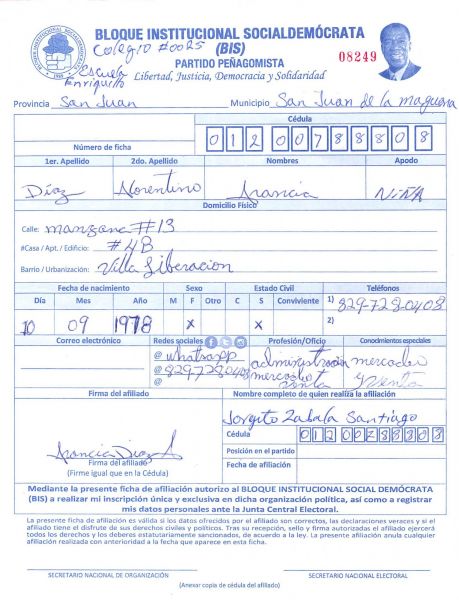 BLOQUE INSTITUCIONAL SOCIALDEMÓCRATA
(BIS)
Colegio #0025
PARTIDO PEÑAGOMISTA
08249
Escuela
Enriquillo
Libertad, Justicia, Democracia y Solidaridad
Provincia San Juan Municipio San Juan de la maguana
Cédula
Número de ficha
1er. Apellido 2do. Apellido Nombres Apodo
Díaz Florentino Francia NIÑA
Domicilio Físico
Calle: manzana #13
#Casa / Apt. / Edificio: #4B
Barrio / Urbanización: Villa Liberación
Fecha de nacimiento Sexo Estado Civil Teléfonos
Día Mes Año M F Otro C S Conviviente 1) 829-728-0408
10 09 1978 X X 2)
Correo electrónico Redes sociales Profesión/Oficio Conodmientos especiales
@ whatsapp administración mercadeo
@ 829-728-0408 mercadeo y venta
@ venta
Firma del afiliado Nombre completo de quien realiza la afiliación
Jorgito Zabala Santiago
Cédula
Francia Diaz
Firma del afiliado
(Firme igual que en la Cédula)
Posición en el partido
Fecha de afiliación
Mediante la presente ficha de afiliación autorizo al BLOQUE INSTITUCIONAL SOCIAL DEMÓCRATA
(BIS) a realizar mi inscripción única y exclusiva en dicha organización política, así como a registrar
mis datos personales ante la Junta Central Electoral.
La presente ficha de afiliación es válida si los datos ofrecidos por el afiliado son correctos, las declaraciones veraces y si el
afiliado tiene el disfrute de sus derechos civiles y políticos. Tras su recepción, sello y firma autorizados el afiliado ejercerá
todos los derechos y los deberes estatutariamente sancionados, de acuerdo a la ley. La presente afiliación anula cualquier
afiliación realizada con anterioridad a la fecha que aparece en esta ficha.
SECRETARIO NACIONAL DE ORGANIZACIÓN SECRETARIO NACIONAL ELECTORAL
(Anexar copia de cédula del afiliado)